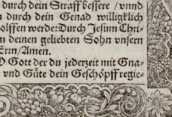 durch dein Straff bessere / vnnd
durch dein Genad willigklich
olffen werde: Durch Jesum Chri-
n deinen geliebten Sohn vnsern
Ern / Amen.
O Gott der du jederzeit mit Gna-
vnd Güte dein Geschöpff regie-